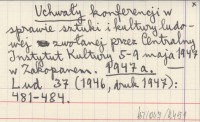 Uchwały konferencji w
sprawie sztuki i kultury ludo-
wej zwołanej przez Centralny
Instytut Kultury 5-9 maja 1947
w Zakopanem. 1947 a.
Lud 37 (1946, druk 1947):
481-484.